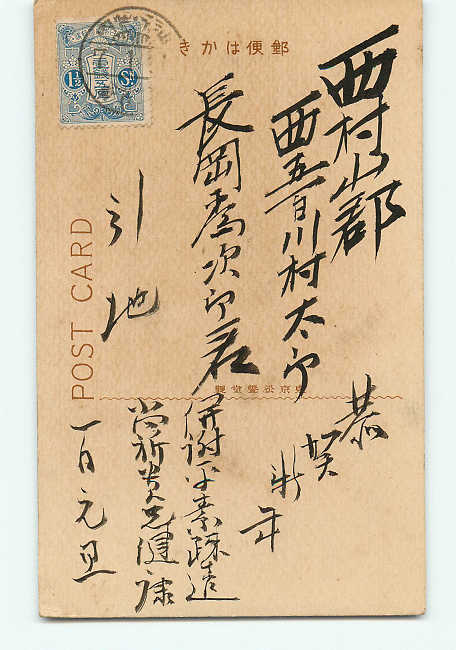 きかは便郵
1½ Sn.
POST CARD
西村山郡
西五百川村太郎
長岡喬次郎君
引地
恭賀新年
併謝平素疎遠
尚祈貴兄健康
一月元旦